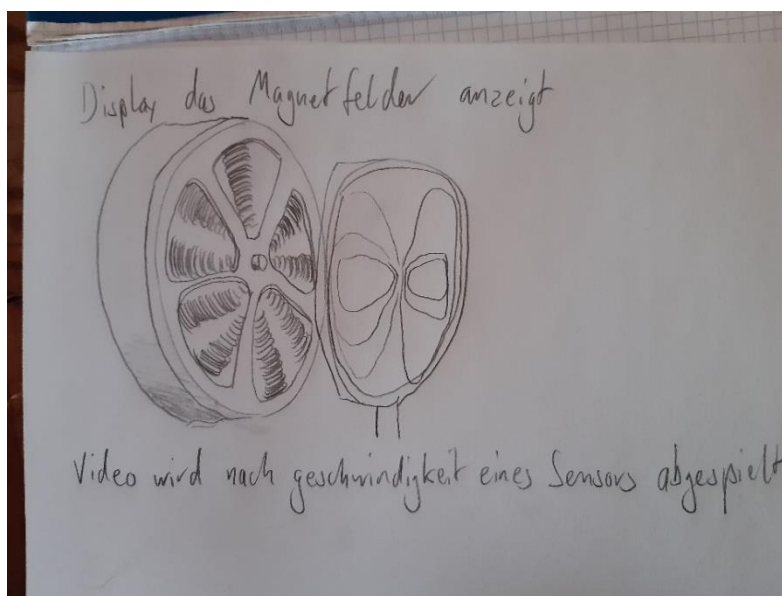 Display das Magnetfelder anzeigt
Video wird nach geschwindigkeit eines Sensors abgespielt